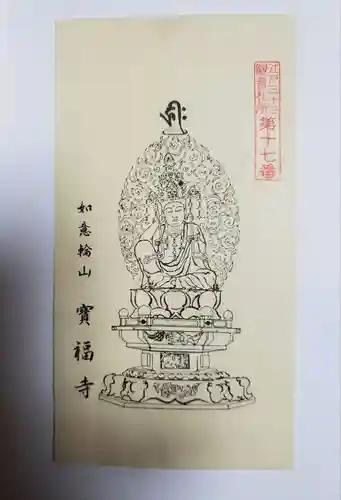 江戸三十三
観音札所
第十七番
如意輪山
寶福寺